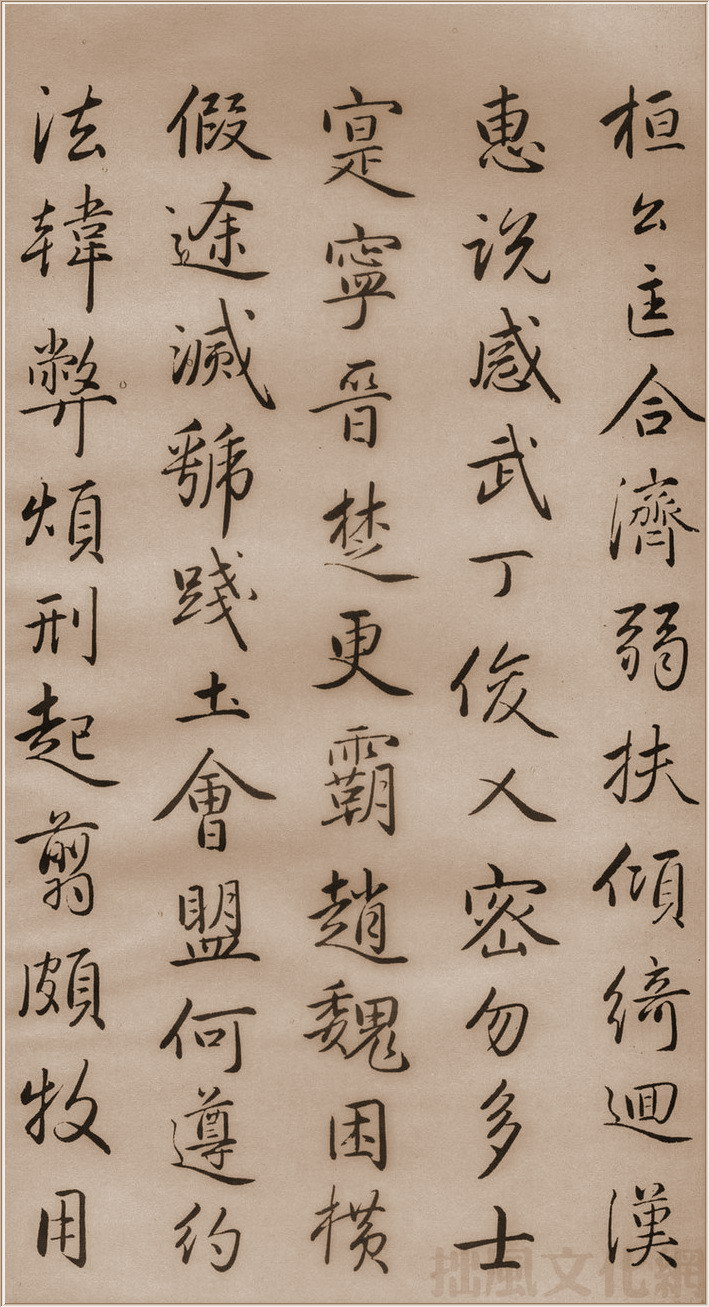 桓公匡合濟弱扶傾綺迴漢
惠說感武丁俊乂密勿多士
寔寧晉楚更霸趙魏困橫
假途滅虢踐土會盟何遵約
法韓弊煩刑起翦頗牧用
拙風文化網